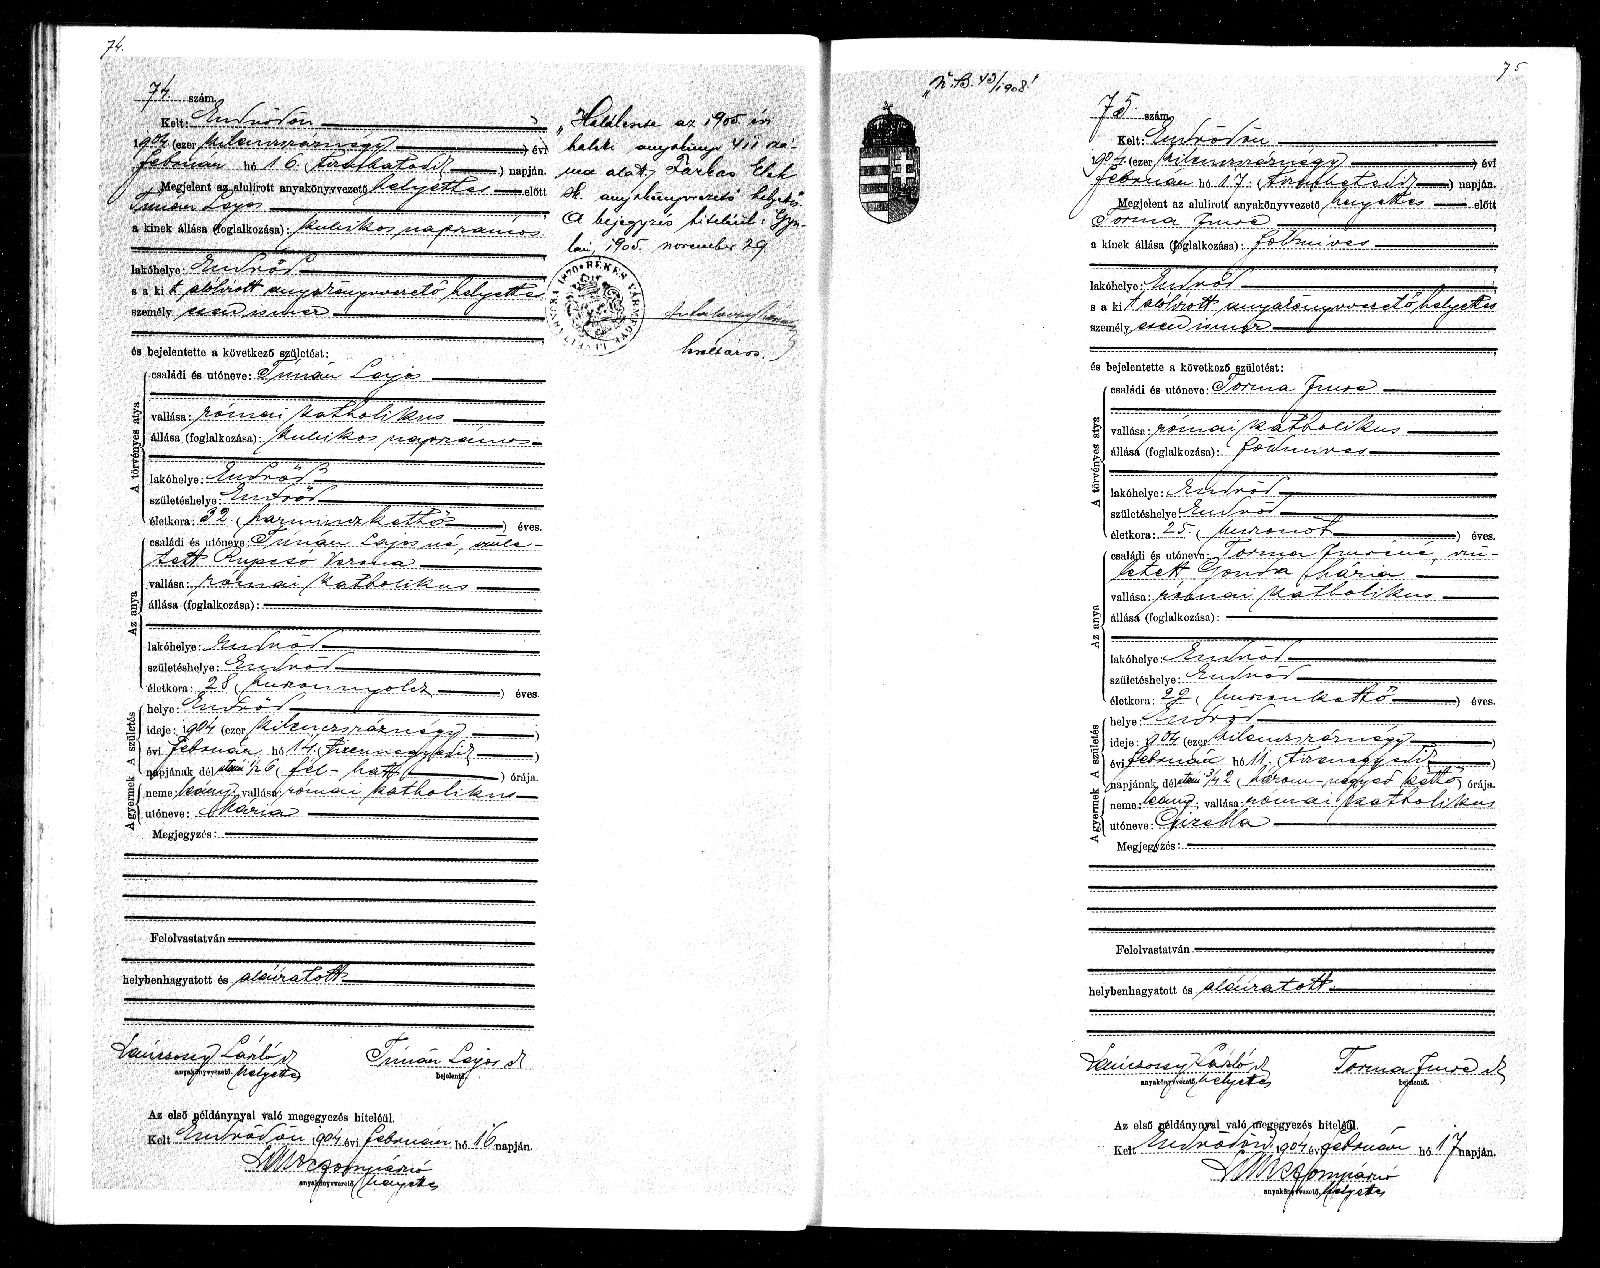 74.
74. szám.
Kelt: Endrődön
1904 (ezer kilenczszáznégy) évi
február hó 16 (tizenhatodik) napján.
Megjelent az alulirott anyakönyvvezető helyettes előtt
Timán Lajos
a kinek állása (foglalkozása): kubikos napszámos
lakóhelye: Endrőd
s a kit alólirott anyakönyvvezető helyettes
személyesen ismer
és bejelentette a következő születést:
A törvényes atya
családi és utóneve: Timán Lajos
vallása: római katholikus
állása (foglalkozása): kubikos napszámos
lakóhelye: Endrőd
születéshelye: Endrőd
életkora: 32 (harminczkettős) éves.
Az anya
családi és utóneve: Timán Lajosné, szüle-
tett Rupcsó Verona
vallása: római katholikus
állása (foglalkozása):
lakóhelye: Endrőd
születéshelye: Endrőd
életkora: 28 (huszonnyolcz) éves.
A gyermek A születés
helye: Endrőd
ideje: 1904 (ezer kilenczszáznégy)
évi február hó 14 (tizennegyedik)
napjának délutáni 1/2 6 (fél-hat) órája.
neme: leány; vallása: római katholikus
utóneve: Mária
Megjegyzés:
Felolvastatván
helybenhagyatott és aláiratott
László
anyakönyvvezető helyettes
Timán Lajos
bejelentő.
Az első példánynyal való megegyezés hiteléül.
Kelt Endrődön 1904 évi február hó 16 napján.
anyakönyvvezető helyettes
„Halálesete az 1905 évi
halotti anyakönyv 411 szá-
ma alatt, Farkas Elek
sk. anyakönyvvezető helyettes
A bejegyzés hiteléül: Gyu-
lán, 1905. november 29
BÉKÉS VÁRMEGYE LEVÉLTÁRNOKA 1870
levéltáros.
„N. B. 43/1908"
75
75. szám.
Kelt: Endrődön
1904. (ezer kilenczszáznégy) évi
február hó 17. (tizenhetedik) napján.
Megjelent az alulirott anyakönyvvezető helyettes előtt
Torma Imre
a kinek állása (foglalkozása): földmives
lakóhelye: Endrőd
s a kit alólirott anyakönyvvezető helyettes
személyesen ismer
és bejelentette a következő születést:
A törvényes atya
családi és utóneve: Torma Imre
vallása: római katholikus
állása (foglalkozása): földmives
lakóhelye: Endrőd
születéshelye: Endrőd
életkora: 25. (huszonöt) éves.
Az anya
családi és utóneve: Torma Imréné, szü-
letett Gonda Mária
vallása: római katholikus
állása (foglalkozása):
lakóhelye: Endrőd
születéshelye: Endrőd
életkora: 22 (huszonkettő) éves.
A gyermek A születés
helye: Endrőd
ideje: 1904 (ezer kilenczszáznégy)
évi február hó
napjának délutáni 3/4 2 (három-negyed kettő) órája.
neme: leány; vallása: római katholikus
utóneve: Gizella
Megjegyzés:
Felolvastatván
helybenhagyatott és aláiratott
László
anyakönyvvezető helyettes
Torma Imre
bejelentő.
Az első példánynyal való megegyezés hiteléül.
Kelt Endrődön 1904 évi február hó 17 napján.
anyakönyvvezető helyettes